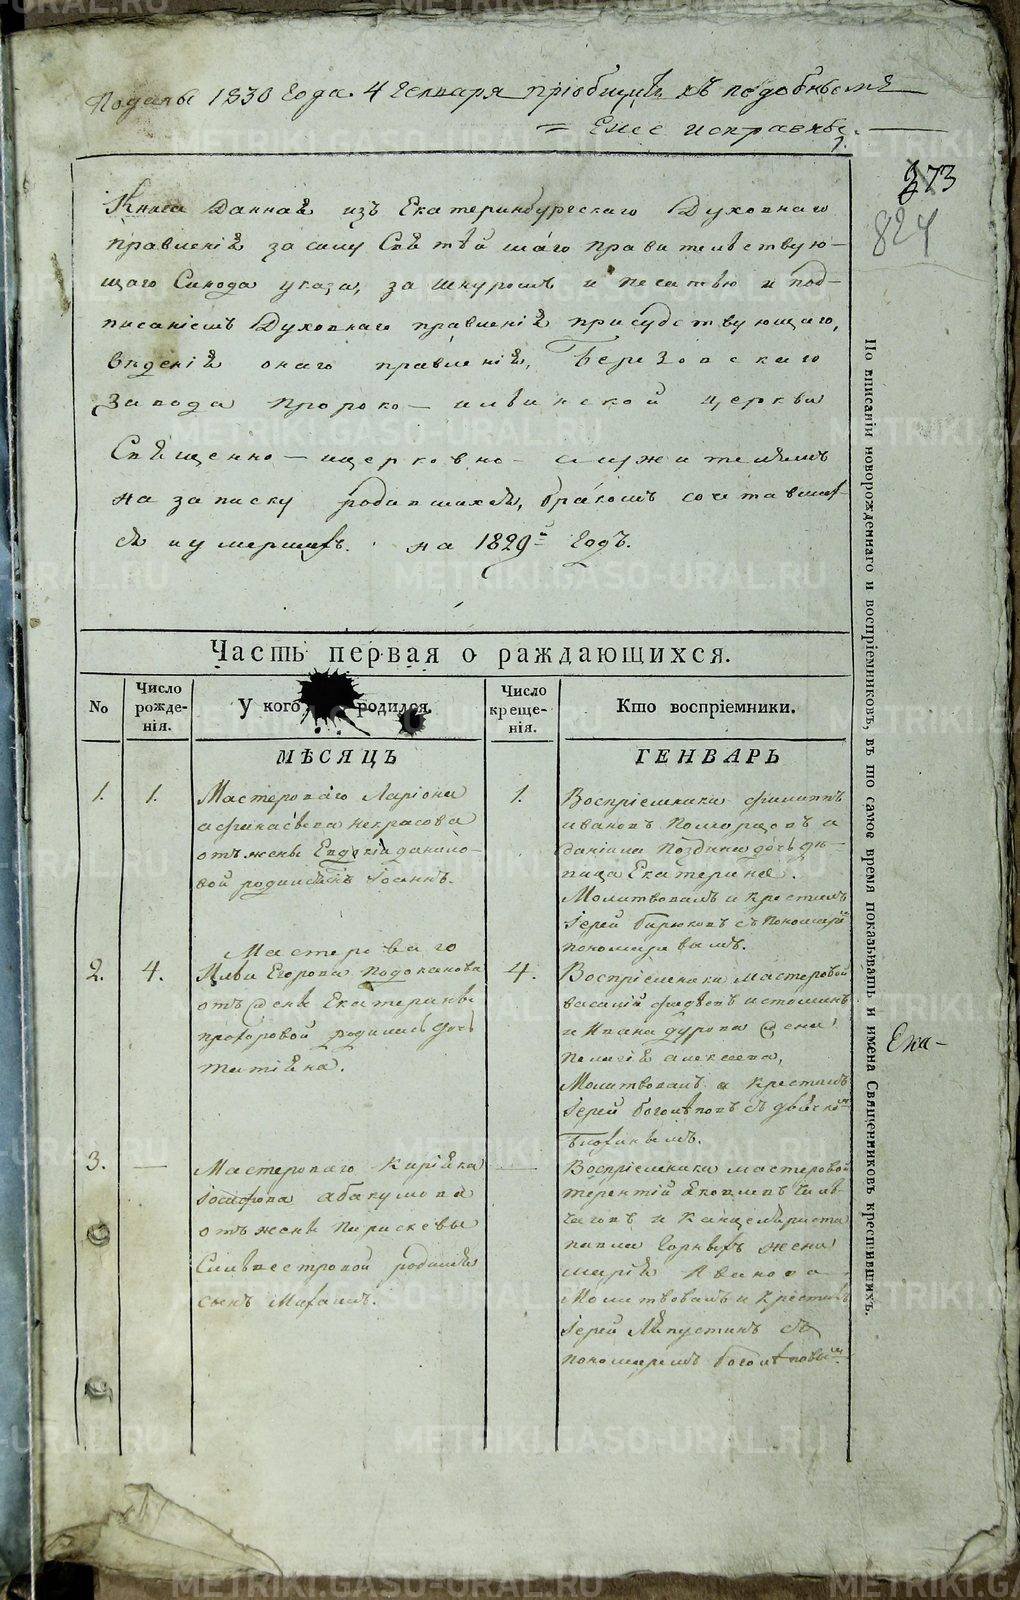 Поданы 1830 Года. 4 Генваря пріобщить къ подобнымъ
= Ему исправнѣе.
1.
373
824
Книга Данная изъ Екатеринбургскаго Духовнаго
правленія за силу Святѣйшаго правительствую-
щаго Синода указа, за шнуромъ и печатью и под-
писаніемъ Духовнаго правленія присудствующаго,
вѣденія онаго правленія, Березовскаго
Завода Пророко-ильинской церкви
Священно-церковно-служителямъ
на записку родившихся, бракомъ сочетавших-
ся и умершихъ. на 1829й Годъ.
Часть первая о раждающихся.
No
Число рожде-нія.
У кого родился.
Число креще-нія.
Кто воспріемники.
МѢСЯЦЪ
ГЕНВАРЬ
1. 1.
Мастероваго Ларіона
афинасьева некрасова
отъ жены Евдокіи данило-
вой родился сынъ Іоаннъ.
1.
Воспріемники филиппъ
ивановъ Поморцовъ и
даніила Поздина дочь дѣ-
вица Екатерина.
Молитвовалъ и крестилъ
Іерей Бирюковъ съ Пономарем
пономаревымъ.
2. 4.
Мастероваго
Ильи Егорова Подоканова
отъ жены Екатерины
прохоровой родилась дочь
татіяна.
4.
Воспріемники мастеровой
василій истоминъ
и Ивана дурова жена
пелагія алексеева,
Молитвовалъ и крестилъ
Іерей боголѣповъ съ
3. —
Мастероваго Кирияка
Іосифова абакумова
отъ жены Параскевы
Сильвестровой родился
сынъ Михаилъ.
—
Воспріемники мастеровой
терентій Яковлевъ
и Канцеляриста
павла Горныхъ жена
марія Иванова
Молитвовалъ и Крестилъ
Іерей Ляпустинъ съ
пономаремъ боголѣповым
Ека-
По вписаніи новорожденнаго и воспріемниковъ, въ то самое время показывать и имена Священниковъ крестившихъ.
METRIKI.GASO-URAL.RU